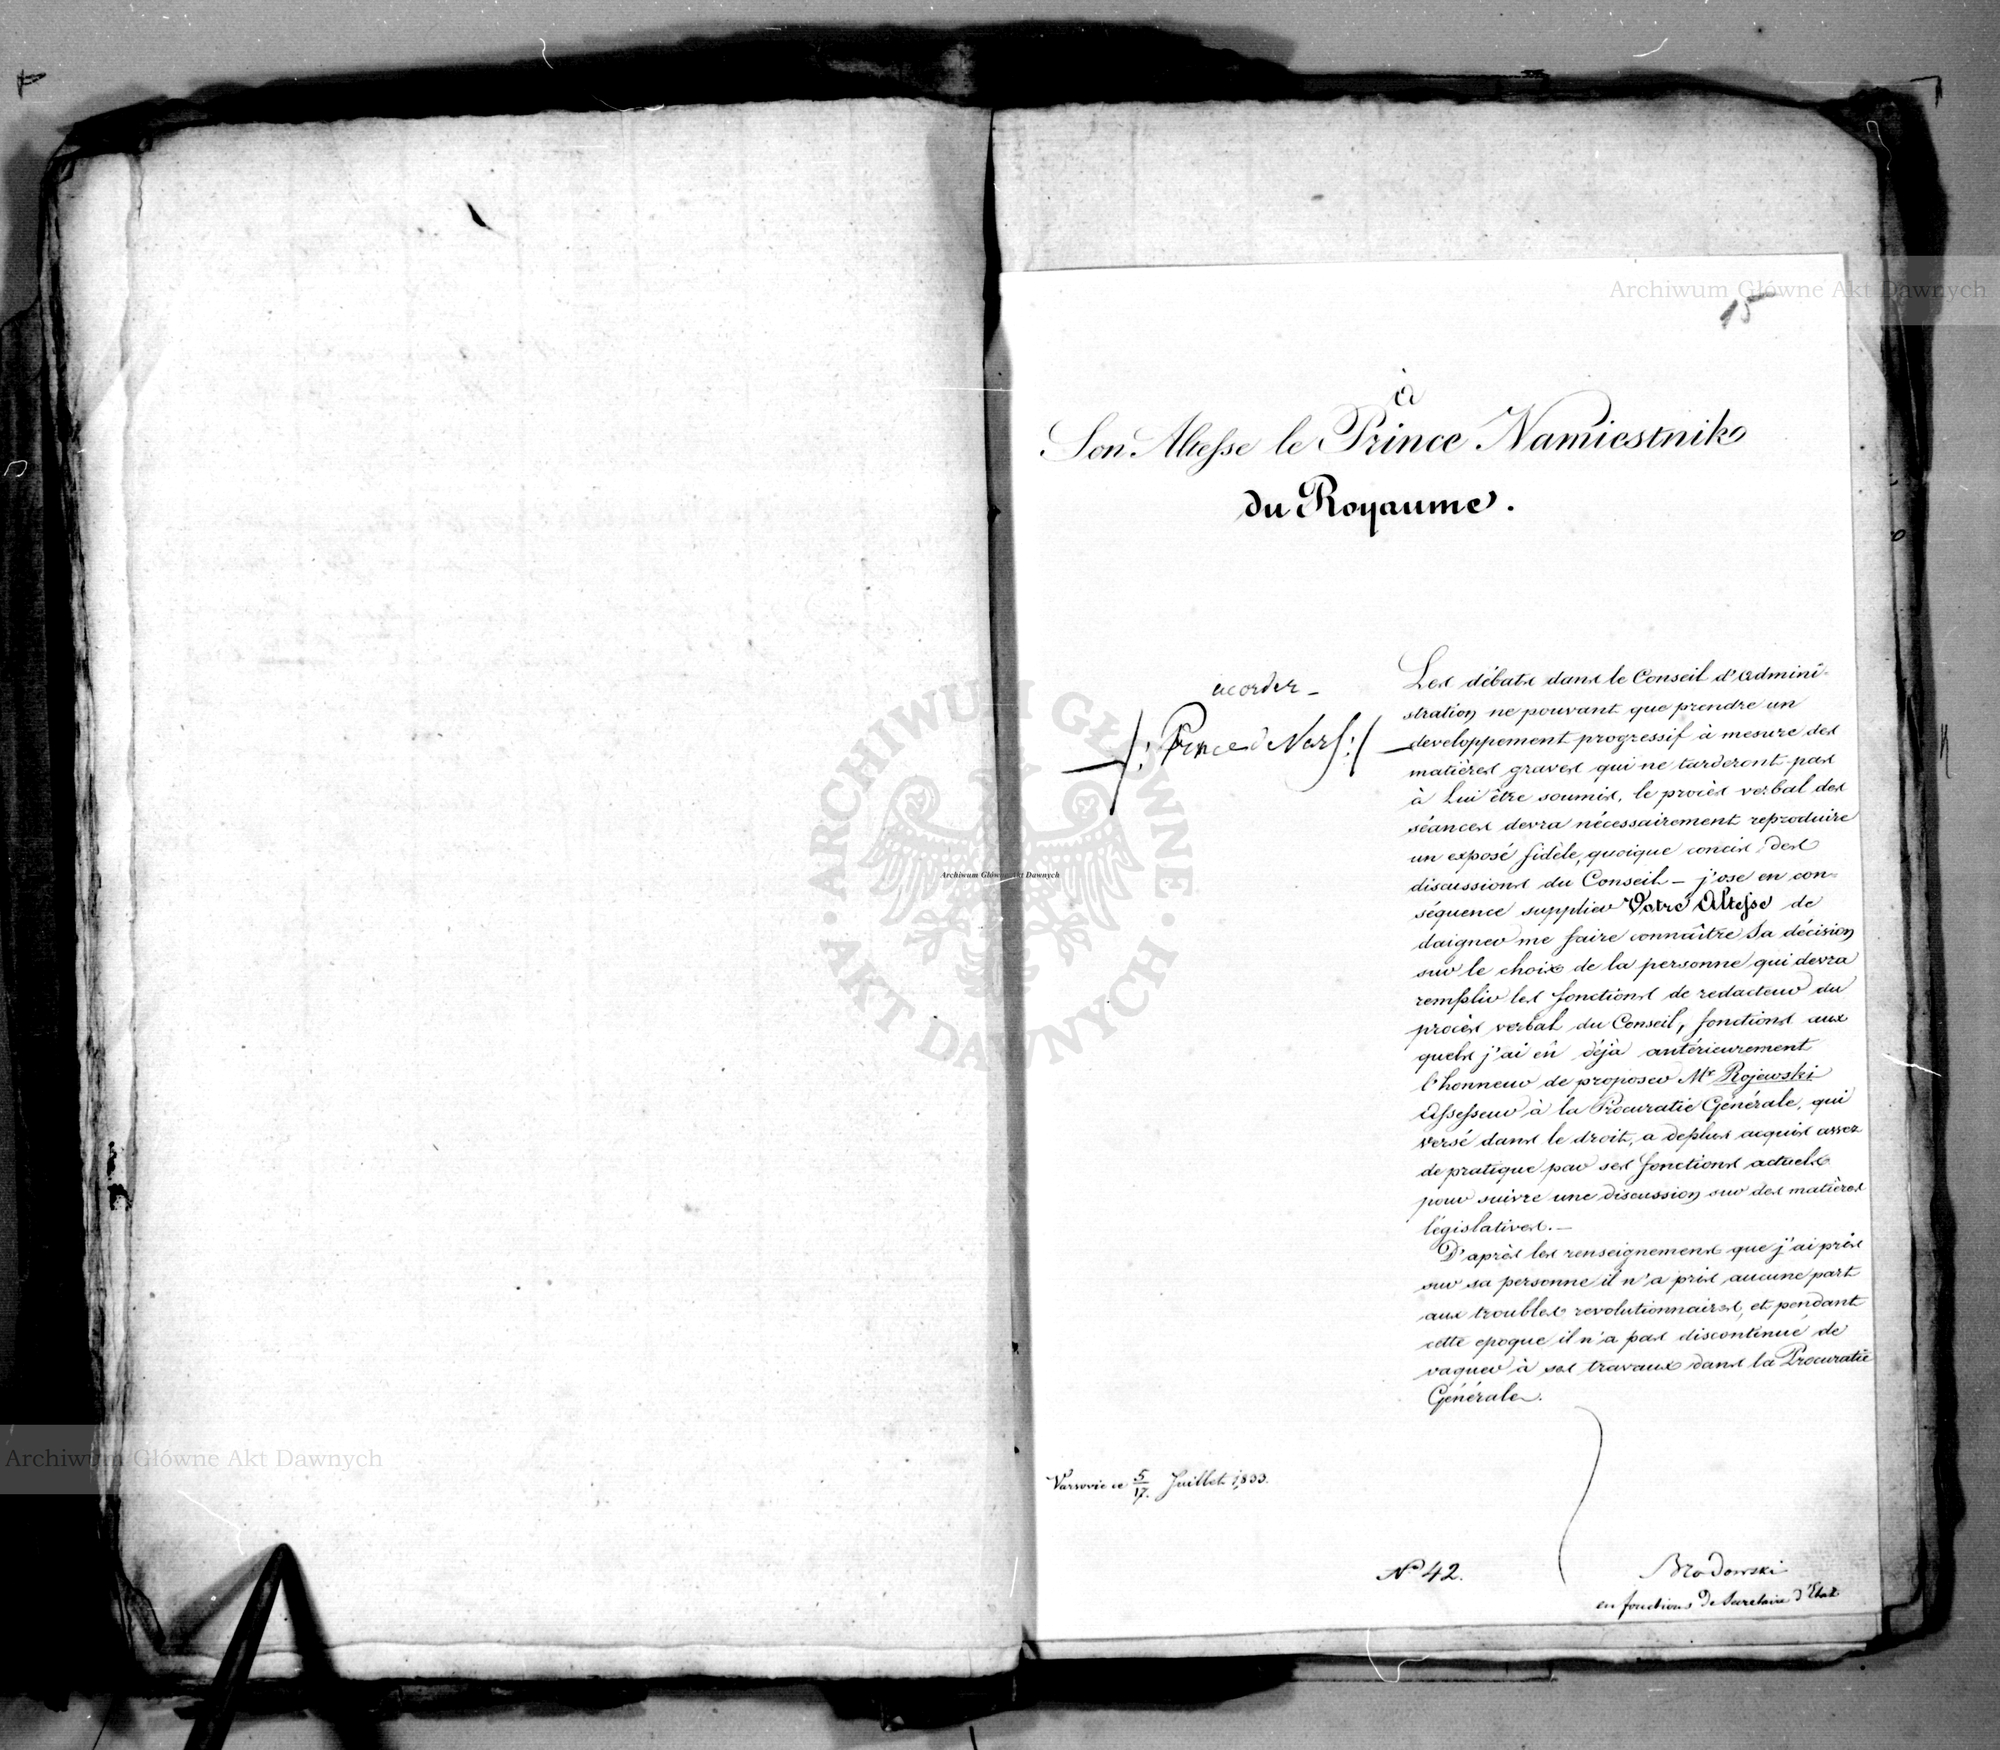 15
à
Son Altesse le Prince Namiestnik
du Royaume.
acorder –
Les débats dans le Conseil d'Admini-
stration ne pouvant que prendre un
developpement progressif à mesure des
matières graves qui ne tarderont pas
à Lui être soumis, le procès verbal des
séances devra nécessairement reproduire
un exposé fidèle, quoique concis, des
discussions du Conseil – j'ose en con-
séquence supplier Votre Altesse de
daigner me faire connaître Sa décision
sur le choix de la personne qui devra
remplir les fonctions de redacteur du
procès verbal du Conseil, fonctions aux
quels j'ai eû déjà antérieurement
l'honneur de proposer Mr Rojewski
Assesseur à la Procuratie Générale, qui
versé dans le droit, a deplus acquis assez
de pratique par ses fonctions actuels
pour suivre une discussion sur des matières
législatives. –
D'après les renseignemens que j'ai pris
sur sa personne il n'a pris aucune part
aux troubles revolutionnaires, et pendant
cette epoque il n'a pas discontinué de
vaquer à ses travaux dans la Procuratie
Générale.
Varsovie ce 5/17. Juillet 1833.
No 42.
Brodowski
en fonctions de Secretaire d'Etat
Archiwum Główne Akt Dawnych
Archiwum Główne Akt Dawnych
Archiwum Główne Akt Dawnych
ARCHIWUM GŁÓWNE
AKT DAWNYCH